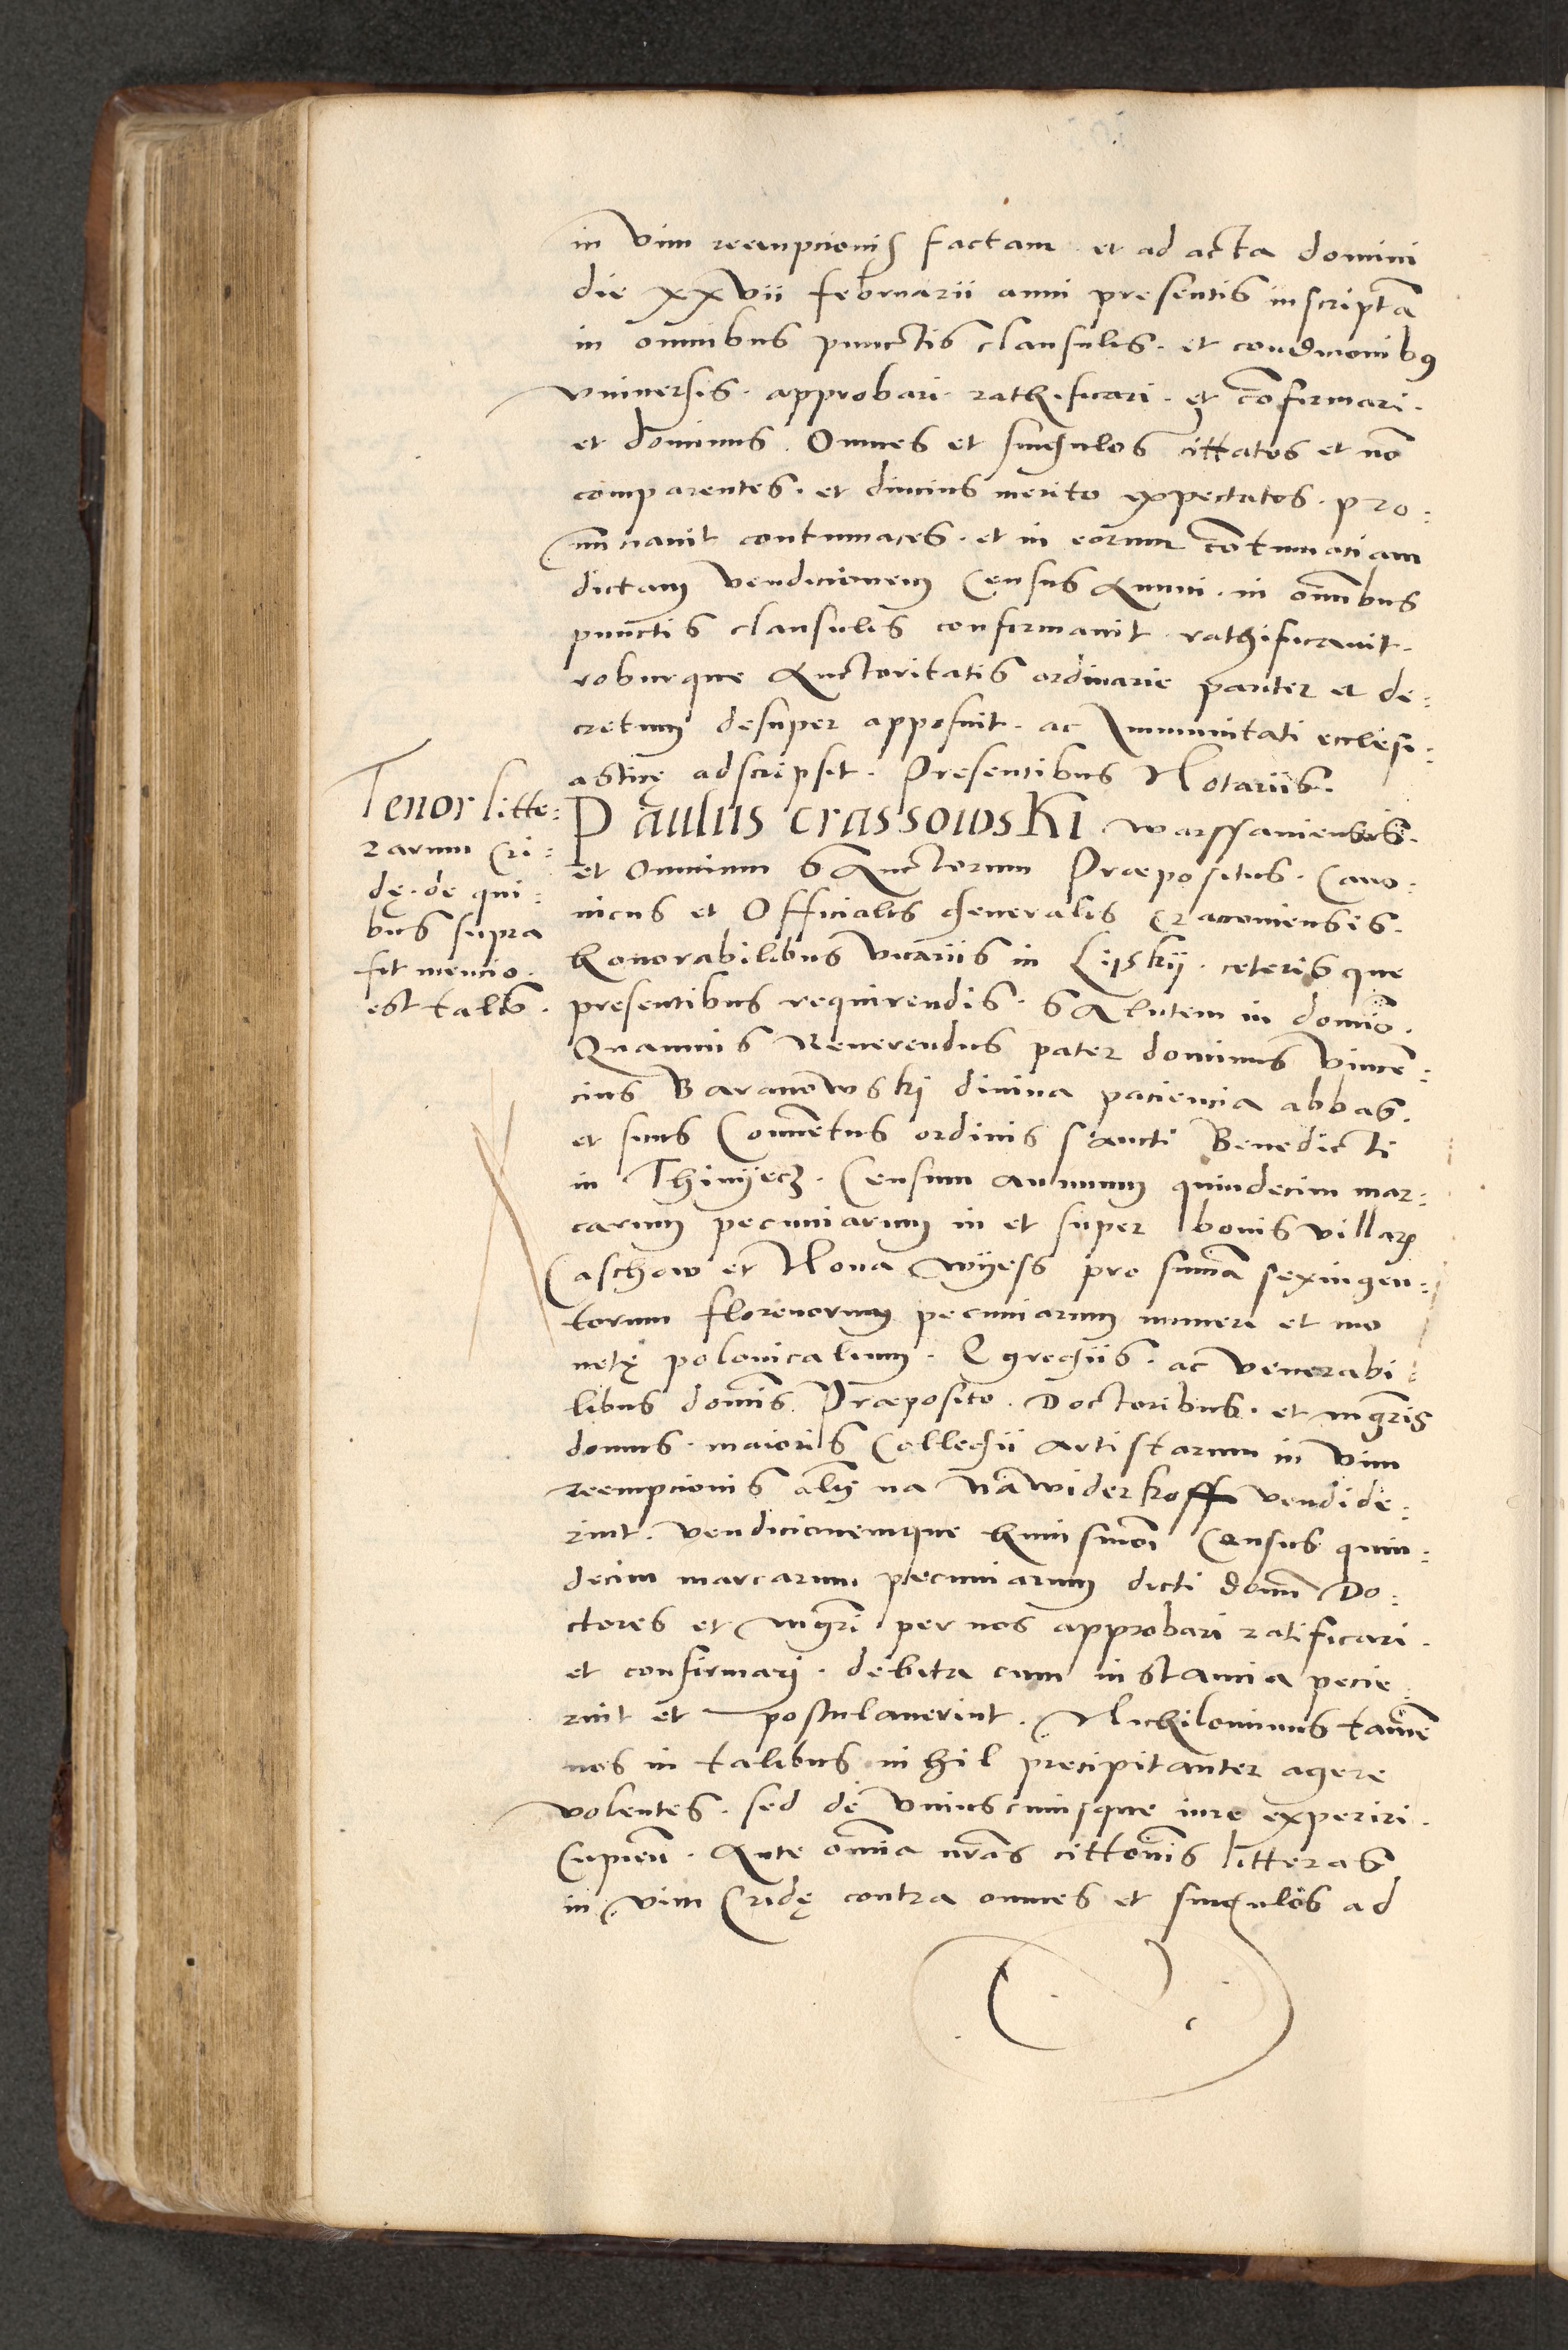 in vim reempcionis factam et ad acta domini
die xxvii februarii anni presentis inscriptā
in omnibus punctis clausulis. et condicionibꝰ
vniuersis. approbari. rathificari. et cōfirmari.
et dominus. Omnes et singulos cittatos et nō
comparentes. et diucius merito expectatos. pro:
nūciauit contumaces. et in eorum cōtumaciam
dictam vendicionem Census Annui. in omībus
punctis clausulis confirmauit. rathificauit.
roburque Auctoritatis ordinarie pariter et de:
cretum desuper apposuit. ac Immunitati ecclesi:
asticę adscripsit. Presentibus Notariis.
Tenor litte:
rarum Cri:
dę. de qui:
bus supra
fit mencio.
est talis.
Paulus crassowski warssauiensis.
et Omnium SAnctorum Præpositus. Cano:
nicus et Officialis Generalis Cracouiensis.
honorabilibus vicariis in Lipskij. ceterisque
presentibus requirendis. SAlutem in domīo.
Quamuis Reuerendus pater dominus Vincē:
cius Baranowski diuina paciencia abbas.
et suus Conuētus ordinis sancti Benedicti
in Thinÿecz. Censum annuum quindecim mar:
carum pecuniarum in et super bonis villarꝫ
Caschow et Noua Wÿess pro sumā sexingen:
torum florenorum pecuniarum numeri et mo
netę polonicalium. Egregiis. ac venerabi:
libus domīs. Præposito. Doctoribus. et mgr̄is
domus. maioris Collegii Artistarum in vim
reempcionis alȳ na nawiderkoff vendide:
rint. vendicionemque huiusmōi Census quin:
decim marcarum pecuniarum dicti domī Do:
ctores et mgr̄i per nos approbari ratificari.
et confirmari. debita cum instancia pecie:
rint et postulauerint. Nichilominus tamē
nos in talibus nihil precipitanter agere
volentes. sed de vniuscuiusque iure experiri.
Cupieñ. Ante omīa nr̄as cittōnis litteras
in vim Cridę contra omnes et singulos ad